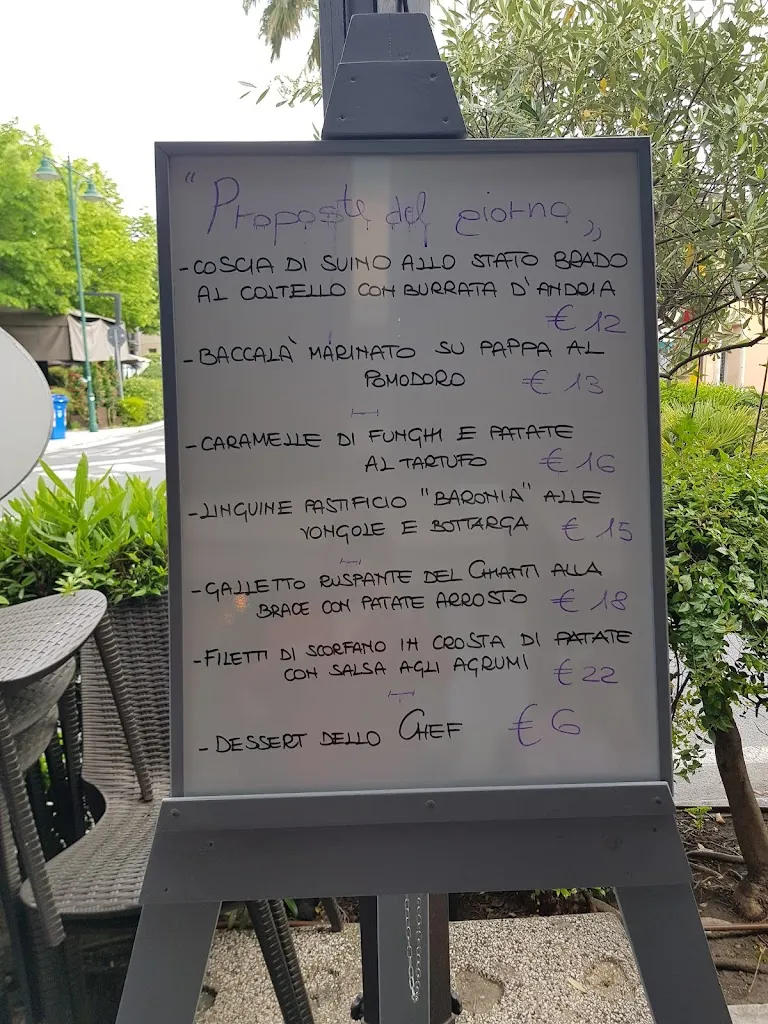 "Proposte del giorno"
-COSCIA DI SUINO ALLO STATO BRADO
AL COLTELLO CON BURRATA D'ANDRIA
€ 12
-BACCALÀ MARINATO SU PAPPA AL
POMODORO € 13
-CARAMELLE DI FUNGHI E PATATE
AL TARTUFO € 16
-LINGUINE PASTIFICIO "BARONIA" ALLE
VONGOLE E BOTTARGA € 15
-GALLETTO RUSPANTE DEL CHIANTI ALLA
BRACE CON PATATE ARROSTO € 18
-FILETTI DI SCORFANO IN CROSTA DI PATATE
CON SALSA AGLI AGRUMI € 22
-DESSERT DELLO CHEF € 6